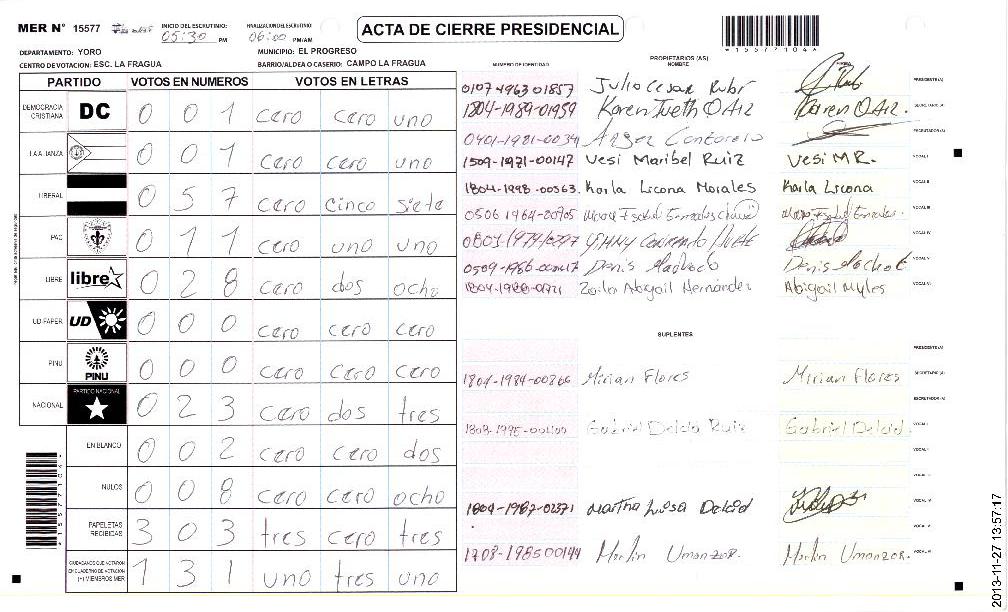 MER N° 15577
INICIO DEL ESCRUTINIO:
05:30 PM
FINALIZACION DEL ESCRUTINIO:
06:00 PM/AM
ACTA DE CIERRE PRESIDENCIAL
*15577104*
DEPARTAMENTO: YORO
MUNICIPIO: EL PROGRESO
CENTRO DE VOTACION: ESC. LA FRAGUA
BARRIO/ALDEA O CASERIO: CAMPO LA FRAGUA
PARTIDO VOTOS EN NUMEROS VOTOS EN LETRAS
DEMOCRACIA CRISTIANA DC 0 0 1 cero cero uno
LA ALIANZA 0 0 1 cero cero uno
LIBERAL 0 5 7 cero cinco siete
PAC 0 1 1 cero uno uno
LIBRE libre 0 2 8 cero dos ocho
UD-FAPER UD 0 0 0 cero cero cero
PINU PINU 0 0 0 cero cero cero
NACIONAL PARTIDO NACIONAL 0 2 3 cero dos tres
EN BLANCO 0 0 2 cero cero dos
NULOS 0 0 8 cero cero ocho
PAPELETAS RECIBIDAS 3 0 3 tres cero tres
CIUDADANOS QUE VOTARON EN CUADERNO DE VOTACION (+) MIEMBROS MER 1 3 1 uno tres uno
NUMERO DE IDENTIDAD
PROPIETARIOS (AS)
NOMBRE
FIRMA
0107 1963 01857 Julio Cesar Rubi PRESIDENTE(A)
1804-1989-01959 Karen Iveth Karen SECRETARIO(A)
0401-1981-0034 ESCRUTADOR(A)
1509-1971-00147 Vesi Maribel Ruiz Vesi MR. VOCAL I
1804-1998-00563 Karla Licona Morales Karla Licona VOCAL II
0506 1964-00705 Isabel Isabel VOCAL III
VOCAL IV
Denis Denis VOCAL V
Zoila Abigail Hernandez Abigail VOCAL VI
SUPLENTES
PRESIDENTE(A)
1804-1984-00866 Mirian Flores Mirian Flores SECRETARIO(A)
ESCRUTADOR(A)
Gabriel Delcid Ruiz Gabriel Delcid VOCAL I
VOCAL II
VOCAL III
1804-1982-02371 Martha Luisa Delcid VOCAL IV
VOCAL V
1708-1985 00144 Marlin Umanzor. Marlin Umanzor. VOCAL VI
*15577104*
2013-11-27 13:57:17